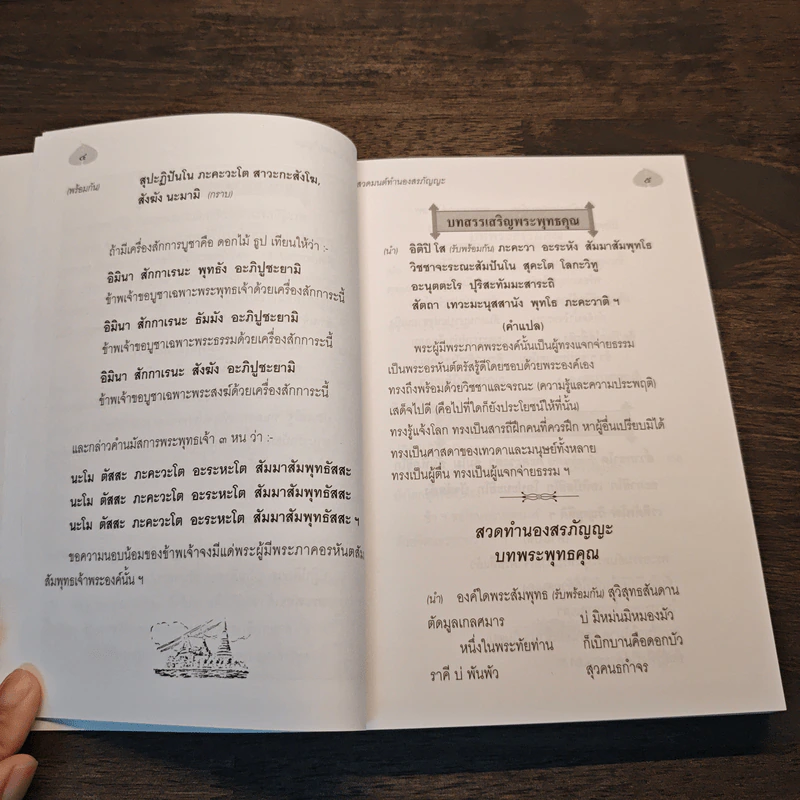 ๘
(พร้อมกัน) สุปะฏิปันโน ภะคะวะโต สาวะกะสังโฆ,
สังฆัง นะมามิ (กราบ)
ถ้ามีเครื่องสักการบูชาคือ ดอกไม้ ธูป เทียนให้ว่า :-
อิมินา สักกาเรนะ พุทธัง อะภิปูชะยามิ
ข้าพเจ้าขอบูชาเฉพาะพระพุทธเจ้าด้วยเครื่องสักการะนี้
อิมินา สักกาเรนะ ธัมมัง อะภิปูชะยามิ
ข้าพเจ้าขอบูชาเฉพาะพระธรรมด้วยเครื่องสักการะนี้
อิมินา สักกาเรนะ สังฆัง อะภิปูชะยามิ
ข้าพเจ้าขอบูชาเฉพาะพระสงฆ์ด้วยเครื่องสักการะนี้
และกล่าวคำนมัสการพระพุทธเจ้า ๓ หน ว่า :-
นะโม ตัสสะ ภะคะวะโต อะระหะโต สัมมาสัมพุทธัสสะ
นะโม ตัสสะ ภะคะวะโต อะระหะโต สัมมาสัมพุทธัสสะ
นะโม ตัสสะ ภะคะวะโต อะระหะโต สัมมาสัมพุทธัสสะ ฯ
ขอความนอบน้อมของข้าพเจ้าจงมีแด่พระผู้มีพระภาคอรหันตสัม
สัมพุทธเจ้าพระองค์นั้น ฯ
สวดมนต์ทำนองสรภัญญะ
๙
บทสรรเสริญพระพุทธคุณ
(นำ) อิติปิ โส (รับพร้อมกัน) ภะคะวา อะระหัง สัมมาสัมพุทโธ
วิชชาจะระณะสัมปันโน สุคะโต โลกะวิทู
อะนุตตะโร ปุริสะทัมมะสาระถิ
สัตถา เทวะมะนุสสานัง พุทโธ ภะคะวาติ ฯ
(คำแปล)
พระผู้มีพระภาคพระองค์นั้นเป็นผู้ทรงแจกจ่ายธรรม
เป็นพระอรหันต์ตรัสรู้ดีโดยชอบด้วยพระองค์เอง
ทรงถึงพร้อมด้วยวิชชาและจรณะ (ความรู้และความประพฤติ)
เสด็จไปดี (คือไปที่ใดก็ยังประโยชน์ให้ที่นั้น)
ทรงรู้แจ้งโลก ทรงเป็นสารถีฝึกคนที่ควรฝึก หาผู้อื่นเปรียบมิได้
ทรงเป็นศาสดาของเทวดาและมนุษย์ทั้งหลาย
ทรงเป็นผู้ตื่น ทรงเป็นผู้แจกจ่ายธรรม ฯ
สวดทำนองสรภัญญะ
บทพระพุทธคุณ
(นำ) องค์ใดพระสัมพุทธ (รับพร้อมกัน) สุวิสุทธสันดาน
ตัดมูลเกลศมาร บ่ มิหม่นมิหมองมัว
หนึ่งในพระทัยท่าน ก็เบิกบานคือดอกบัว
ราคี บ่ พันพัว สุวคนธกำจร